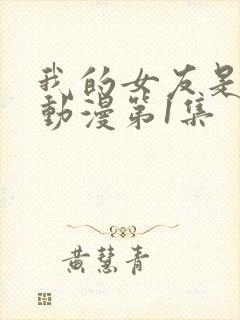 我的女友是
動漫第1集
黃慧青